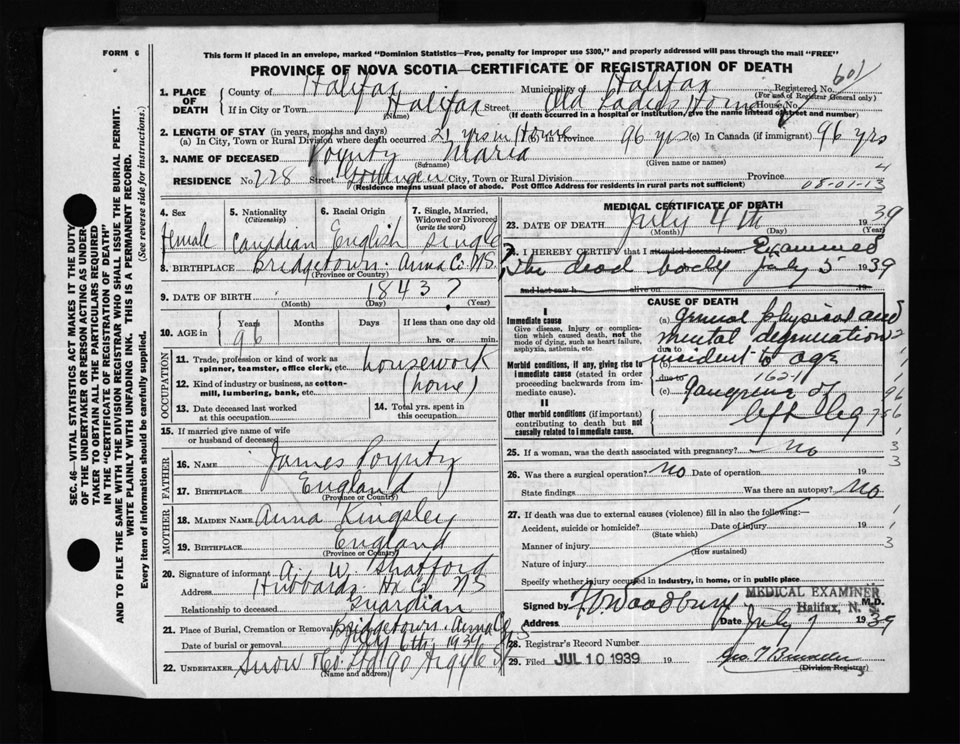 FORM 6
This form if placed in an envelope, marked "Dominion Statistics—Free, penalty for improper use $300," and properly addressed will pass through the mail "FREE"
PROVINCE OF NOVA SCOTIA—CERTIFICATE OF REGISTRATION OF DEATH
601
1. PLACE OF DEATH
County of Halifax Municipality of Halifax Registered No.
(For use of Registrar General only)
If in City or Town Halifax Street Old Ladies Home House No.
(Name) (If death occurred in a hospital or institution, give the name instead of street and number)
2. LENGTH OF STAY (in years, months and days)
(a) In City, Town or Rural Division where death occurred 21 yrs in Home (b) In Province 96 yrs (c) In Canada (if immigrant) 96 yrs
3. NAME OF DECEASED Poyntz Maria
(Surname) (Given name or names)
RESIDENCE No. 228 Street Gottingen City, Town or Rural Division Province 4
(Residence means usual place of abode. Post Office Address for residents in rural parts not sufficient) 08-01-13
4. Sex
female
5. Nationality
(Citizenship)
Canadian
6. Racial Origin
English
7. Single, Married, Widowed or Divorced
(write the word)
Single
8. BIRTHPLACE Bridgetown. Anna Co. N.S.
(Province or Country)
9. DATE OF BIRTH 1843?
(Month) (Day) (Year)
10. AGE in
Years Months Days If less than one day
96 hrs. or min.
OCCUPATION
11. Trade, profession or kind of work as spinner, teamster, office clerk, etc. housework
12. Kind of industry or business, as cotton-mill, lumbering, bank, etc. (home)
13. Date deceased last worked at this occupation
14. Total yrs. spent in this occupation
15. If married give name of wife or husband of deceased
FATHER
16. NAME James Poyntz
17. BIRTHPLACE England
(Province or Country)
MOTHER
18. MAIDEN NAME Anna Kingsley
19. BIRTHPLACE England
(Province or Country)
20. Signature of informant A. W. Shatford
Address Hubbards Hx Co NS
Relationship to deceased Guardian
21. Place of Burial, Cremation or Removal Bridgetown. Anna Co NS
Date of burial or removal July 6th, 1939
22. UNDERTAKER Snow & Co Ltd 90 Argyle St
(Name and address)
MEDICAL CERTIFICATE OF DEATH
23. DATE OF DEATH July 4th 1939
(Month) (Day) (Year)
I HEREBY CERTIFY that I attended deceased from Examined
the dead body July 5 1939
and last saw h alive on 19
CAUSE OF DEATH
I
Immediate cause
Give disease, injury or complication which caused death, not the mode of dying, such as heart failure, asphyxia, asthenia, etc.
(a) General physical and
mental degeneration
due to
Morbid conditions, if any, giving rise to immediate cause (stated in order proceeding backwards from immediate cause).
(b) incident to age
due to 162-1
(c) gangrene of
left leg
II
Other morbid conditions (if important) contributing to death but not causally related to immediate cause.
25. If a woman, was the death associated with pregnancy? no
26. Was there a surgical operation? no Date of operation 19
State findings Was there an autopsy? no
27. If death was due to external causes (violence) fill in also the following:—
Accident, suicide or homicide? Date of injury 19
(State which)
Manner of injury
(How sustained)
Nature of injury
Specify whether injury occurred in industry, in home, or in public place
MEDICAL EXAMINER
Halifax, N. S.
Signed by H.O. Woodbury M.D.
Address Date July 7 1939
28. Registrar's Record Number
29. Filed JUL 10 1939 19
(Division Registrar)
SEC. 46—VITAL STATISTICS ACT MAKES IT THE DUTY
OF THE UNDERTAKER OR PERSON ACTING AS UNDERTAKER TO OBTAIN ALL THE PARTICULARS REQUIRED
IN THE "CERTIFICATE OF REGISTRATION OF DEATH"
AND TO FILE THE SAME WITH THE DIVISION REGISTRAR WHO SHALL ISSUE THE BURIAL PERMIT.
WRITE PLAINLY WITH UNFADING INK. THIS IS A PERMANENT RECORD.
Every item of information should be carefully supplied. (See reverse side for instructions.)